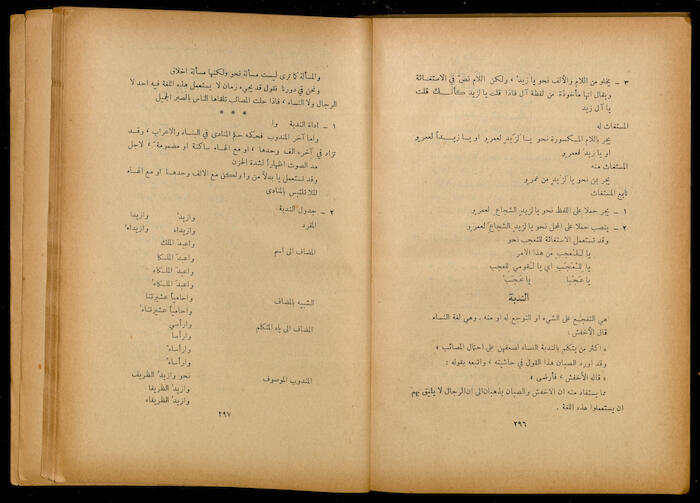 ٣ - يخلو من اللام والألف نحو يا زيدُ ، ولكن اللام نصٌّ في الاستغاثة
ويقال انها مأخوذة من لفظة آل فاذا قلت يا لزيد كأنـــك قلت
يا آل زيد
المستغاث له
يجر باللام المكسورة نحو يا كزيدٍ لعمرو او يا زيـــداً لعمرو
او يا زيدُ لعمرو
المستغاث منه
يجر بمن نحو يا كزيدٍ من عمرو
تابع المستغاث
١ - يجر حملا على اللفظ نحو يا لزيدٍ الشجاعِ لعمرو
٢ - ينصب حملا على المحل نحو يا لزيدٍ الشجاعَ لعمرو
وقد تستعمل الاستغاثة للتعجب نحو
يا للتعجب من هذا الامر
يا للتعجب اي يا لقومي للعجب
يا عجبا يا عجبُ
الندبة
هي التفجّع على الشيء او التوجع له او منه . وهي لغة النساء
قال الأخفش :
« اكثر من يتكلم بالندبة النساء لضعفهن على احتمال المصائب »
وقد اورد الصبان هذا القول في حاشيته ، واتبعه بقوله :
« قاله الأخفش ، فأرضى »
مما يستفاد منه ان الاخفش والصبان يذهبان الى ان الرجال لا يليق بهم
ان يستعملوا هذه اللغة .
٢٩٦
والمسألة كما ترى ليست مسألة نحو ولكنها مسألة اخلاق
ونحن في دورنا نقول قد يجيء زمان لا يستعمل هذه اللغة فيه احد لا
الرجال ولا النساء ، فاذا حلت المصائب تلقاها الناس بالصبر الجميل
* * *
١ - اداة الندبة وا
واما آخر المندوب فحكمه حكم المنادى في البناء والاعراب ، وقد
تزاد في آخره الف وحدها ، او مع الهاء ساكنة او مضمومة ، لاجل
مد الصوت اظهاراً لشدة الحزن
وقد تستعمل يا بدلاً من وا ولكن مع الالف وحدها او مع الهاء
لئلا تلتبس بالمنادى
٢ - جدول الندبة :
المفرد وازيدُ وازيدا
وازيداه وازيداهُ
المضاف الى اسم واعبدَ الملك
واعبدَ الملكا
واعبدَ الملكاه
واعبدَ الملكاهُ
الشبيه بالمضاف واحامياً عشيرتنا
واحامياً عشيرتناهُ
المضاف الى ياء المتكلم وارأسي
وارأسا
وارأساه
وارأساهُ
المندوب الموصوف نحو وازيدُ الظريف
وازيدُ الظريفا
وازيدُ الظريفاه
٢٩٧